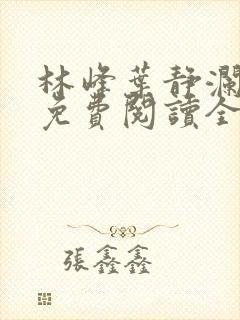 林峰葉靜瀾
免費閱讀全
張鑫鑫